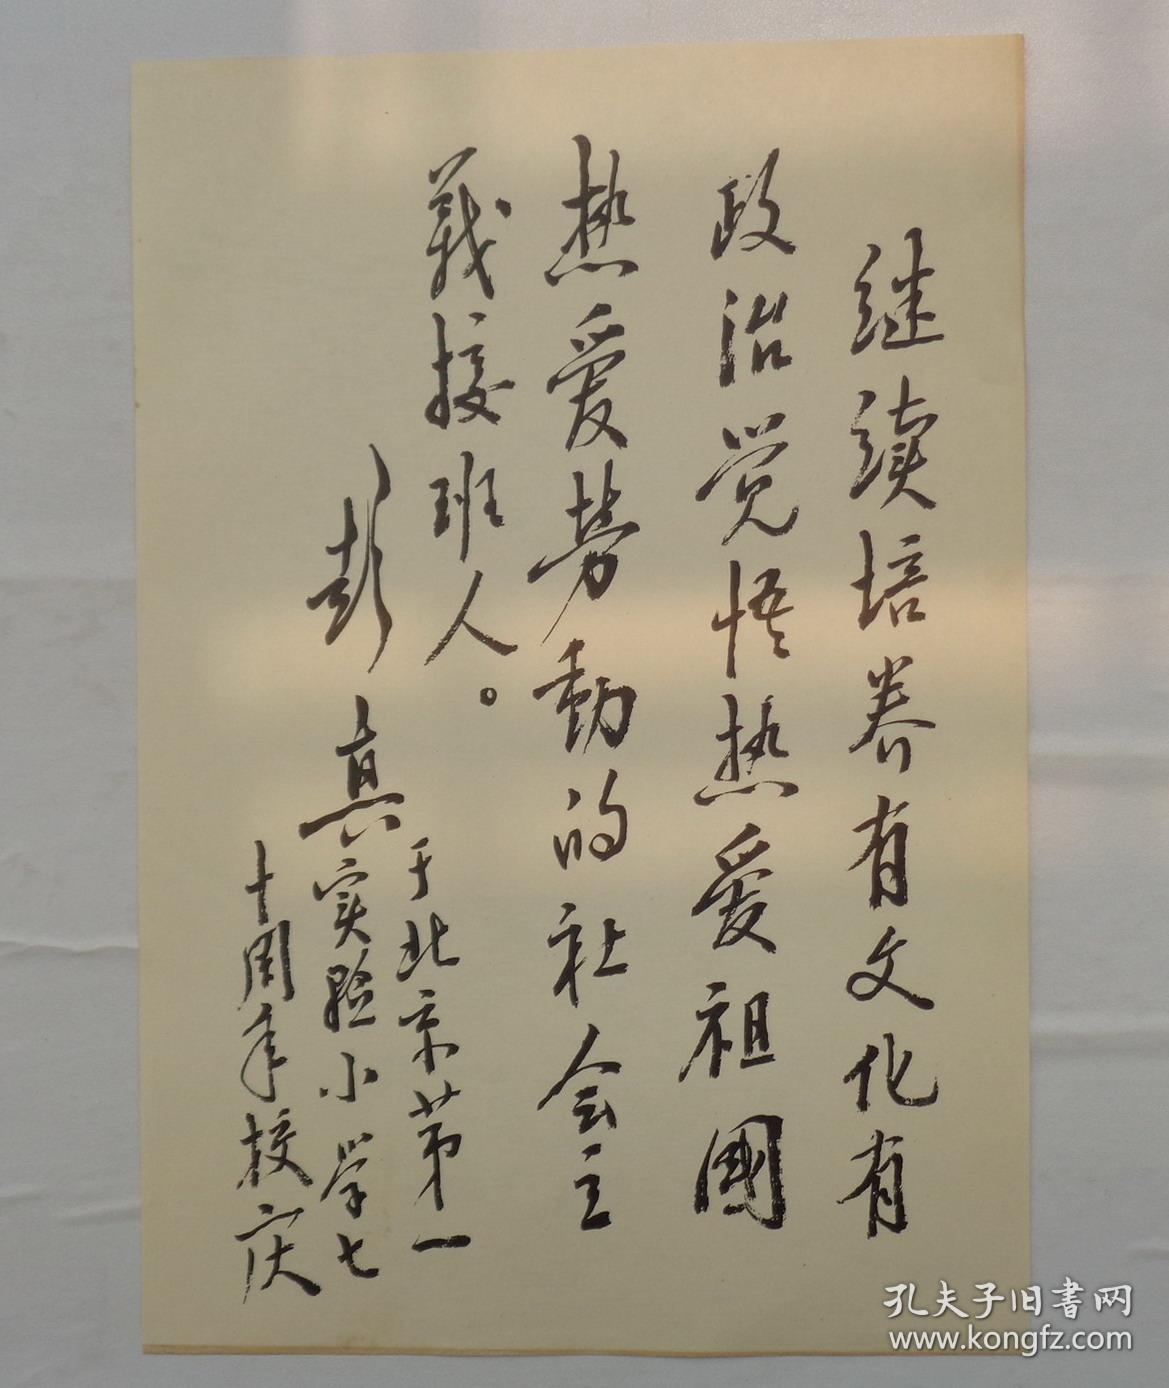 继续培养有文化有
政治觉悟热爱祖國
热爱劳動的社会主
義接班人。
彭真
于北京第一
实验小学七
十周年校庆
孔夫子旧書网
www.kongfz.com